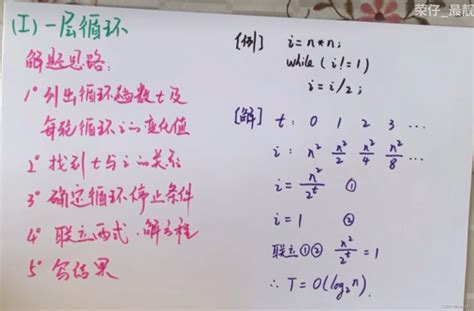 荣仔_最靓
(I) 一层循环
解题思路:
1° 列出循环趟数t及
每轮循环i的变化值
2° 找到t与i的关系
3° 确定循环停止条件
4° 联立两式,解方程
5° 写结果
[例] i=n*n;
while (i!=1)
i=i/2;
[解] t: 0 1 2 3 ...
i: n² n²/2 n²/4 n²/8 ...
i = n²/2^t ①
i = 1 ②
联立①② n²/2^t = 1
∴ T=O(log₂n).